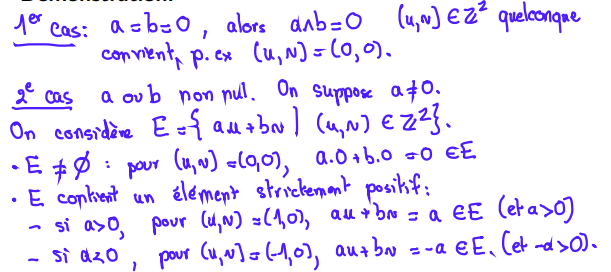 1er cas : a = b = 0, alors a∧b = 0 (u,v) ∈ ℤ² quelconque
convient, p. ex (u,v) = (0,0).
2e cas a ou b non nul. On suppose a ≠ 0.
On considère E = { au + bv | (u,v) ∈ ℤ² }.
• E ≠ ∅ : pour (u,v) = (0,0), a.0 + b.0 = 0 ∈ E
• E contient un élément strictement positif :
– si a>0, pour (u,v) = (1,0), au + bv = a ∈ E (et a>0)
– si a<0, pour (u,v) = (-1,0), au + bv = -a ∈ E. (et -a>0).